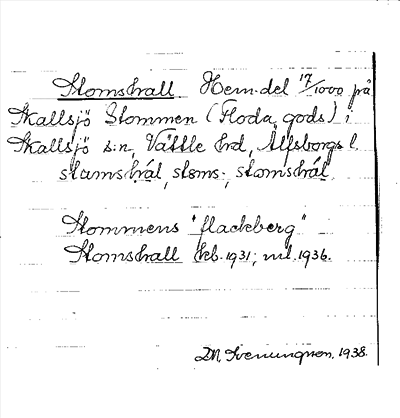 Stomshall Hem.del 17/1000 på
Skallsjö Stommen (Floda gods) i
Skallsjö s:n, Vättle hd, Älfsborgs l.
stamshál, stoms-, stomshál,
Stommens "flackeberg"
Stomshall feb. 1931; 1936.
1938.